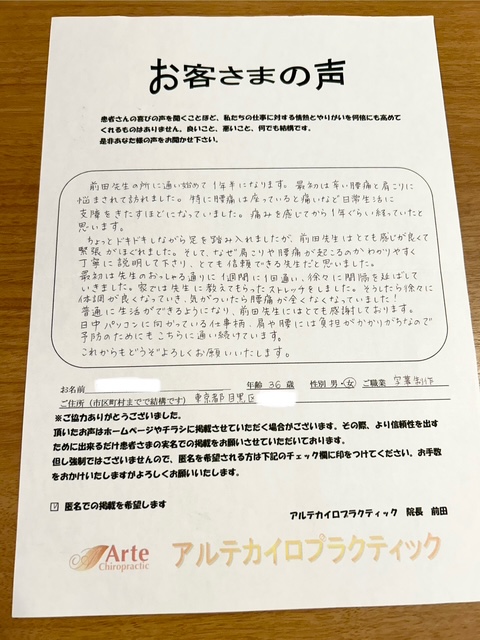 お客さまの声
患者さんの喜びの声を聞くことほど、私たちの仕事に対する情熱とやりがいを何倍にも高めて
くれるものはありません。良いこと、悪いこと、何でも結構です。
是非あなた様の声をお聞かせ下さい。
前田先生の所に通い始めて1年半になります。最初は辛い腰痛と肩こりに
悩まされて訪れました。特に腰痛は座っていると痛いなど日常生活に
支障をきたすほどになっていました。痛みを感じてから1年ぐらい経っていたと
思います。
ちょっとドキドキしながら足を踏み入れましたが、前田先生はとても感じが良くて
緊張がほぐれました。そして、なぜ肩こりや腰痛が起こるのかわかりやすく
丁寧に説明して下さり、とても信頼できる先生だと思いました。
最初は先生のおっしゃる通りに1週間に1回通い、徐々に間隔を延ばして
いきました。家では先生に教えてもらったストレッチをしました。そうしたら徐々に
体調が良くなっていき、気がついたら腰痛が全くなくなっていました！
普通に生活ができるようになり、前田先生にはとても感謝しております。
日中パソコンに向かっている仕事柄、肩や腰には負担がかかりがちなので
予防のためにもこちらに通い続けています。
これからもどうぞよろしくお願いいたします。
お名前 年齢 36 歳 性別 男・女 ご職業 字幕制作
ご住所（市区町村までで結構です） 東京都目黒区
※ご協力ありがとうございました。
頂いたお声はホームページやチラシに掲載させていただく場合がございます。その際、より信頼性を出す
ために出来るだけ患者さまの実名での掲載をお願いさせていただいております。
但し強制ではございませんので、匿名を希望される方は下記のチェック欄に印をつけてください。お手数
をおかけいたしますがよろしくお願いします。
☑ 匿名での掲載を希望します
アルテカイロプラクティック 院長 前田
Arte
Chiropractic
アルテカイロプラクティック